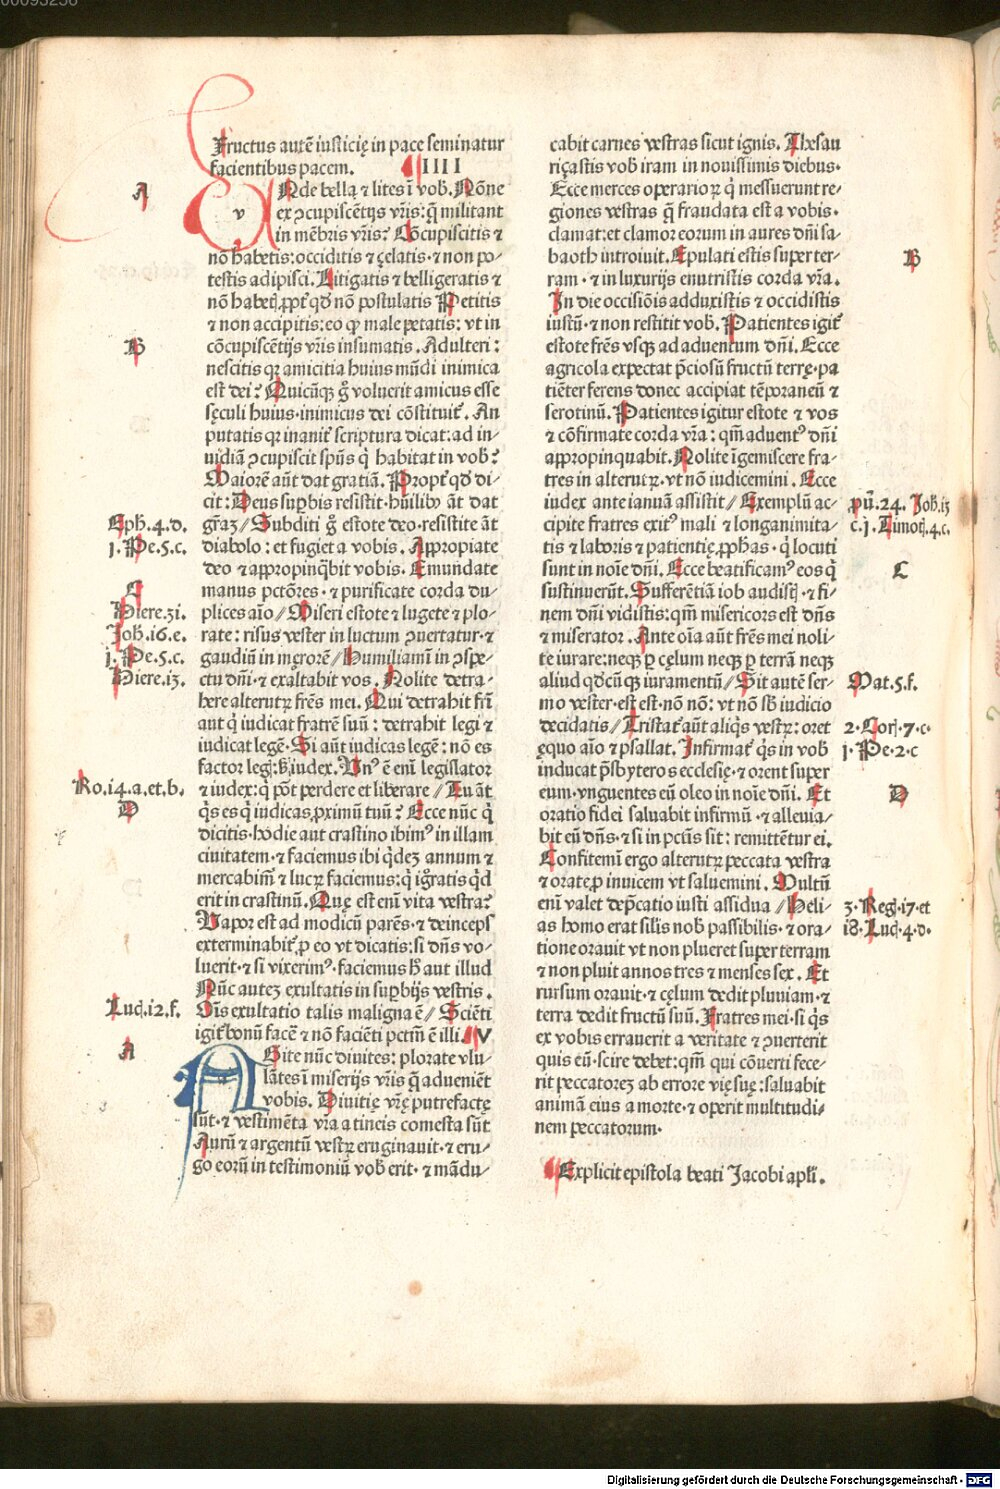 Fructus autē iusticię in pace seminatur
facientibus pacem. IIII
A
VNde bella ⁊ lites ī vob̄. Nōne
ex ꝯcupiscētijs vr̄is: q̄ militant
in mēbris vr̄is? Cōcupiscitis ⁊
nō habetis: occiditis ⁊ çęlatis · ⁊ non po⸗
testis adipisci. Litigatis ⁊ belligeratis ⁊
nō habetꝭ, ꝓpt̄ qd̄ nō postulatis Petitis
⁊ non accipitis: eo ꝙ male petatis: vt in
B
cōcupiscētijs vr̄is insumatis. Adulteri:
nescitis qꝛ amicitia huius mūdi inimica
est dei? Quicūqꝫ g̊ voluerit amicus esse
sęculi huius · inimicus dei cōstituit̄. An
putatis qꝛ inanit̄ scriptura dicat: ad in⸗
uidiā ꝯcupiscit spūs q̇ habitat in vob̄?
Maiorē aūt dat gratiā. Propt̄ qd̄ di⸗
cit: Deus suꝑbis resistit · hūilibꝰ āt dat
Eph. 4. d.
gr̄aꝫ // Subditi g̊ estote deo · resistite āt
1. Pe. 5. c.
diabolo: et fugiet a vobis. Appropiate
deo ⁊ appropinq̄bit vobis. Emundate
C
manus pctōres · ⁊ purificate corda du⸗
Hiere. 31.
plices aīo // Miseri estote ⁊ lugete ⁊ plo⸗
Joh. 16. e.
rate: risus vester in luctum ꝯuertatur · ⁊
1. Pe. 5. c.
gaudiū in męrorē // Humiliamī in ꝯspe⸗
Hiere. 13.
ctu dn̄i · ⁊ exaltabit vos. Nolite detra⸗
here alterutꝝ fr̄es mei. Qui detrahit fr̄i
aut q̇ iudicat fratrē suū: detrahit legi ⁊
iudicat legē. Si aūt iudicas legē: nō es
factor legꝭ: sꝫ iudex. Vnꝰ ē eni legislator
Ro. 14. a. et. b.
⁊ iudex: q̇ pōt perdere et liberare // Tu āt
D
q̇s es q̇ iudicas ꝓximū tuū? Ecce nūc q̇
dicitis · hodie aut crastino ibimꝰ in illam
ciuitatem · ⁊ faciemus ibi q̇deꝫ annum ⁊
mercabim̄ ⁊ lucꝝ faciemus: q̇ ig̊ratis q̇d
erit in crastinū. Quę est eni vita vestra?
Vapor est ad modicū parēs · ⁊ deinceps
exterminabit̄. ꝓ eo vt dicatis: si dn̄s vo⸗
luerit · ⁊ si vixerimꝰ · faciemus h̄ aut illud
Nūc auteꝫ exultatis in suꝑbijs vestris.
Luc. 12. f.
Oīs exultatio talis maligna ē // Sciēti
igit̄ bonū facē ⁊ nō faciēti pctm̄ ē illi. V
A
AGite nūc diuites: plorate vlu⸗
lātes ī miserijs vr̄is q̄ adueniēt
vobis. Diuitię vr̄ę putrefactę
sūt · ⁊ vestimēta vr̄a a tineis comesta sūt
Aurū ⁊ argentū vestꝝ eruginauit · ⁊ eru⸗
go eorū in testimoniū vob̄ erit · ⁊ mādu⸗
cabit carnes vestras sicut ignis. Thesau
riçastis vob̄ iram in nouissimis diebus ·
Ecce merces operarioꝝ q̇ messuerunt re⸗
giones vestras q̄ fraudata est a vobis ·
clamat: et clamor eorum in aures dn̄i sa⸗
B
baoth introiuit. Epulati estis super ter⸗
ram · ⁊ in luxurijs enutristis corda vr̄a.
In die occisiōis adduxistis ⁊ occidistis
iustū · ⁊ non restitit vob̄. Patientes igit̄
estote fr̄es vsqꝫ ad aduentum dn̄i. Ecce
agricola expectat p̄ciosū fructū terrę · pa
tiēter ferens donec accipiat tēporaneū ⁊
serotinū. Patientes igitur estote ⁊ vos
⁊ cōfirmate corda vr̄a: qm̄ aduentꝰ dn̄i
appropinquabit. Nolite īgemiscere fra⸗
tres in alterutꝝ · vt nō iudicemini. Ecce
pū. 24. Joh. 13
iudex ante ianuā assistit // Exemplū ac⸗
c. 1. Timotꝭ. 4. c.
cipite fratres exitꝰ mali ⁊ longanimita⸗
tis ⁊ laboris ⁊ patientię, ꝓphas · q̇ locuti
C
sunt in noīe dn̄i. Ecce beatificamꝰ eos q̇
sustinuerūt. Sufferētiā iob audistꝭ · ⁊ fi⸗
nem dn̄i vidistis: qm̄ misericors est dn̄s
⁊ miserator. Ante oīa aūt fr̄es mei noli⸗
te iurare: neqꝫ ꝑ cęlum neqꝫ ꝑ terrā neqꝫ
Mat. 5. f.
aliud qd̄cūqꝫ iuramentū // Sit autē ser⸗
mo vester · est est · nō nō: vt nō sb̄ iudicio
2. Corꝭ. 7. c.
decidatis // Tristat̄ aūt aliq̇s vestꝝ: oret
1. Pe. 2. c
ęquo aīo ⁊ psallat. Infirmat̄ q̇s in vob̄
inducat p̄sbyteros ecclesię · ⁊ orent super
D
eum · vnguentes eū oleo in noīe dn̄i. Et
oratio fidei saluabit infirmū · ⁊ alleuia⸗
bit eū dn̄s · ⁊ si in pctīs sit: remittētur ei.
Confitemī ergo alterutꝝ peccata vestra
⁊ orate, ꝓ inuicem vt saluemini. Multū
3. Regꝭ. 17. et
eni valet dep̄catio iusti assidua // Heli⸗
18. Luc. 4. d.
as homo erat silis nob̄ passibilis · ⁊ ora⸗
tione orauit vt non plueret super terram
⁊ non pluit annos tres ⁊ menses sex. Et
rursum orauit · ⁊ cęlum dedit pluuiam · ⁊
terra dedit fructū suū. Fratres mei · si q̇s
ex vobis errauerit a veritate ⁊ ꝯuerterit
quis eū · scire debet: qm̄ qui cōuerti fece⸗
rit peccatoreꝫ ab errore vię suę: saluabit
animā eius a morte · ⁊ operit multitudi⸗
nem peccatorum ·
Explicit epistola beati Jacobi apl̄i.
Digitalisierung gefördert durch die Deutsche Forschungsgemeinschaft - DFG